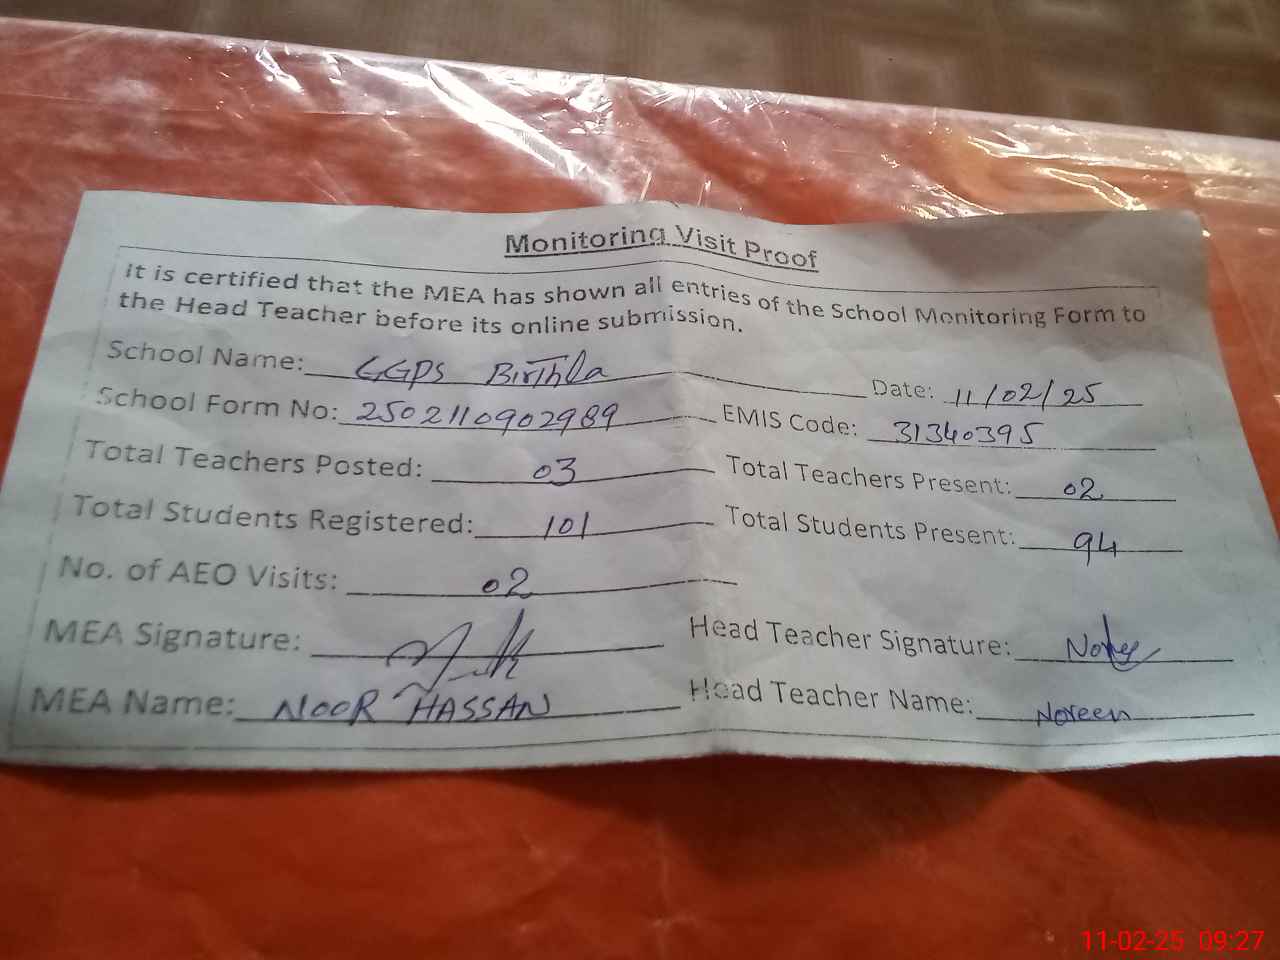 Monitoring Visit Proof
It is certified that the MEA has shown all entries of the School Monitoring Form to
the Head Teacher before its online submission.
School Name: GGPS Birthla Date: 11/02/25
School Form No: 2502110902989 EMIS Code: 31340395
Total Teachers Posted: 03 Total Teachers Present: 02
Total Students Registered: 101 Total Students Present: 94
No. of AEO Visits: 02
MEA Signature: Head Teacher Signature:
MEA Name: NOOR HASSAN Head Teacher Name: Noreen
11-02-25 09:27